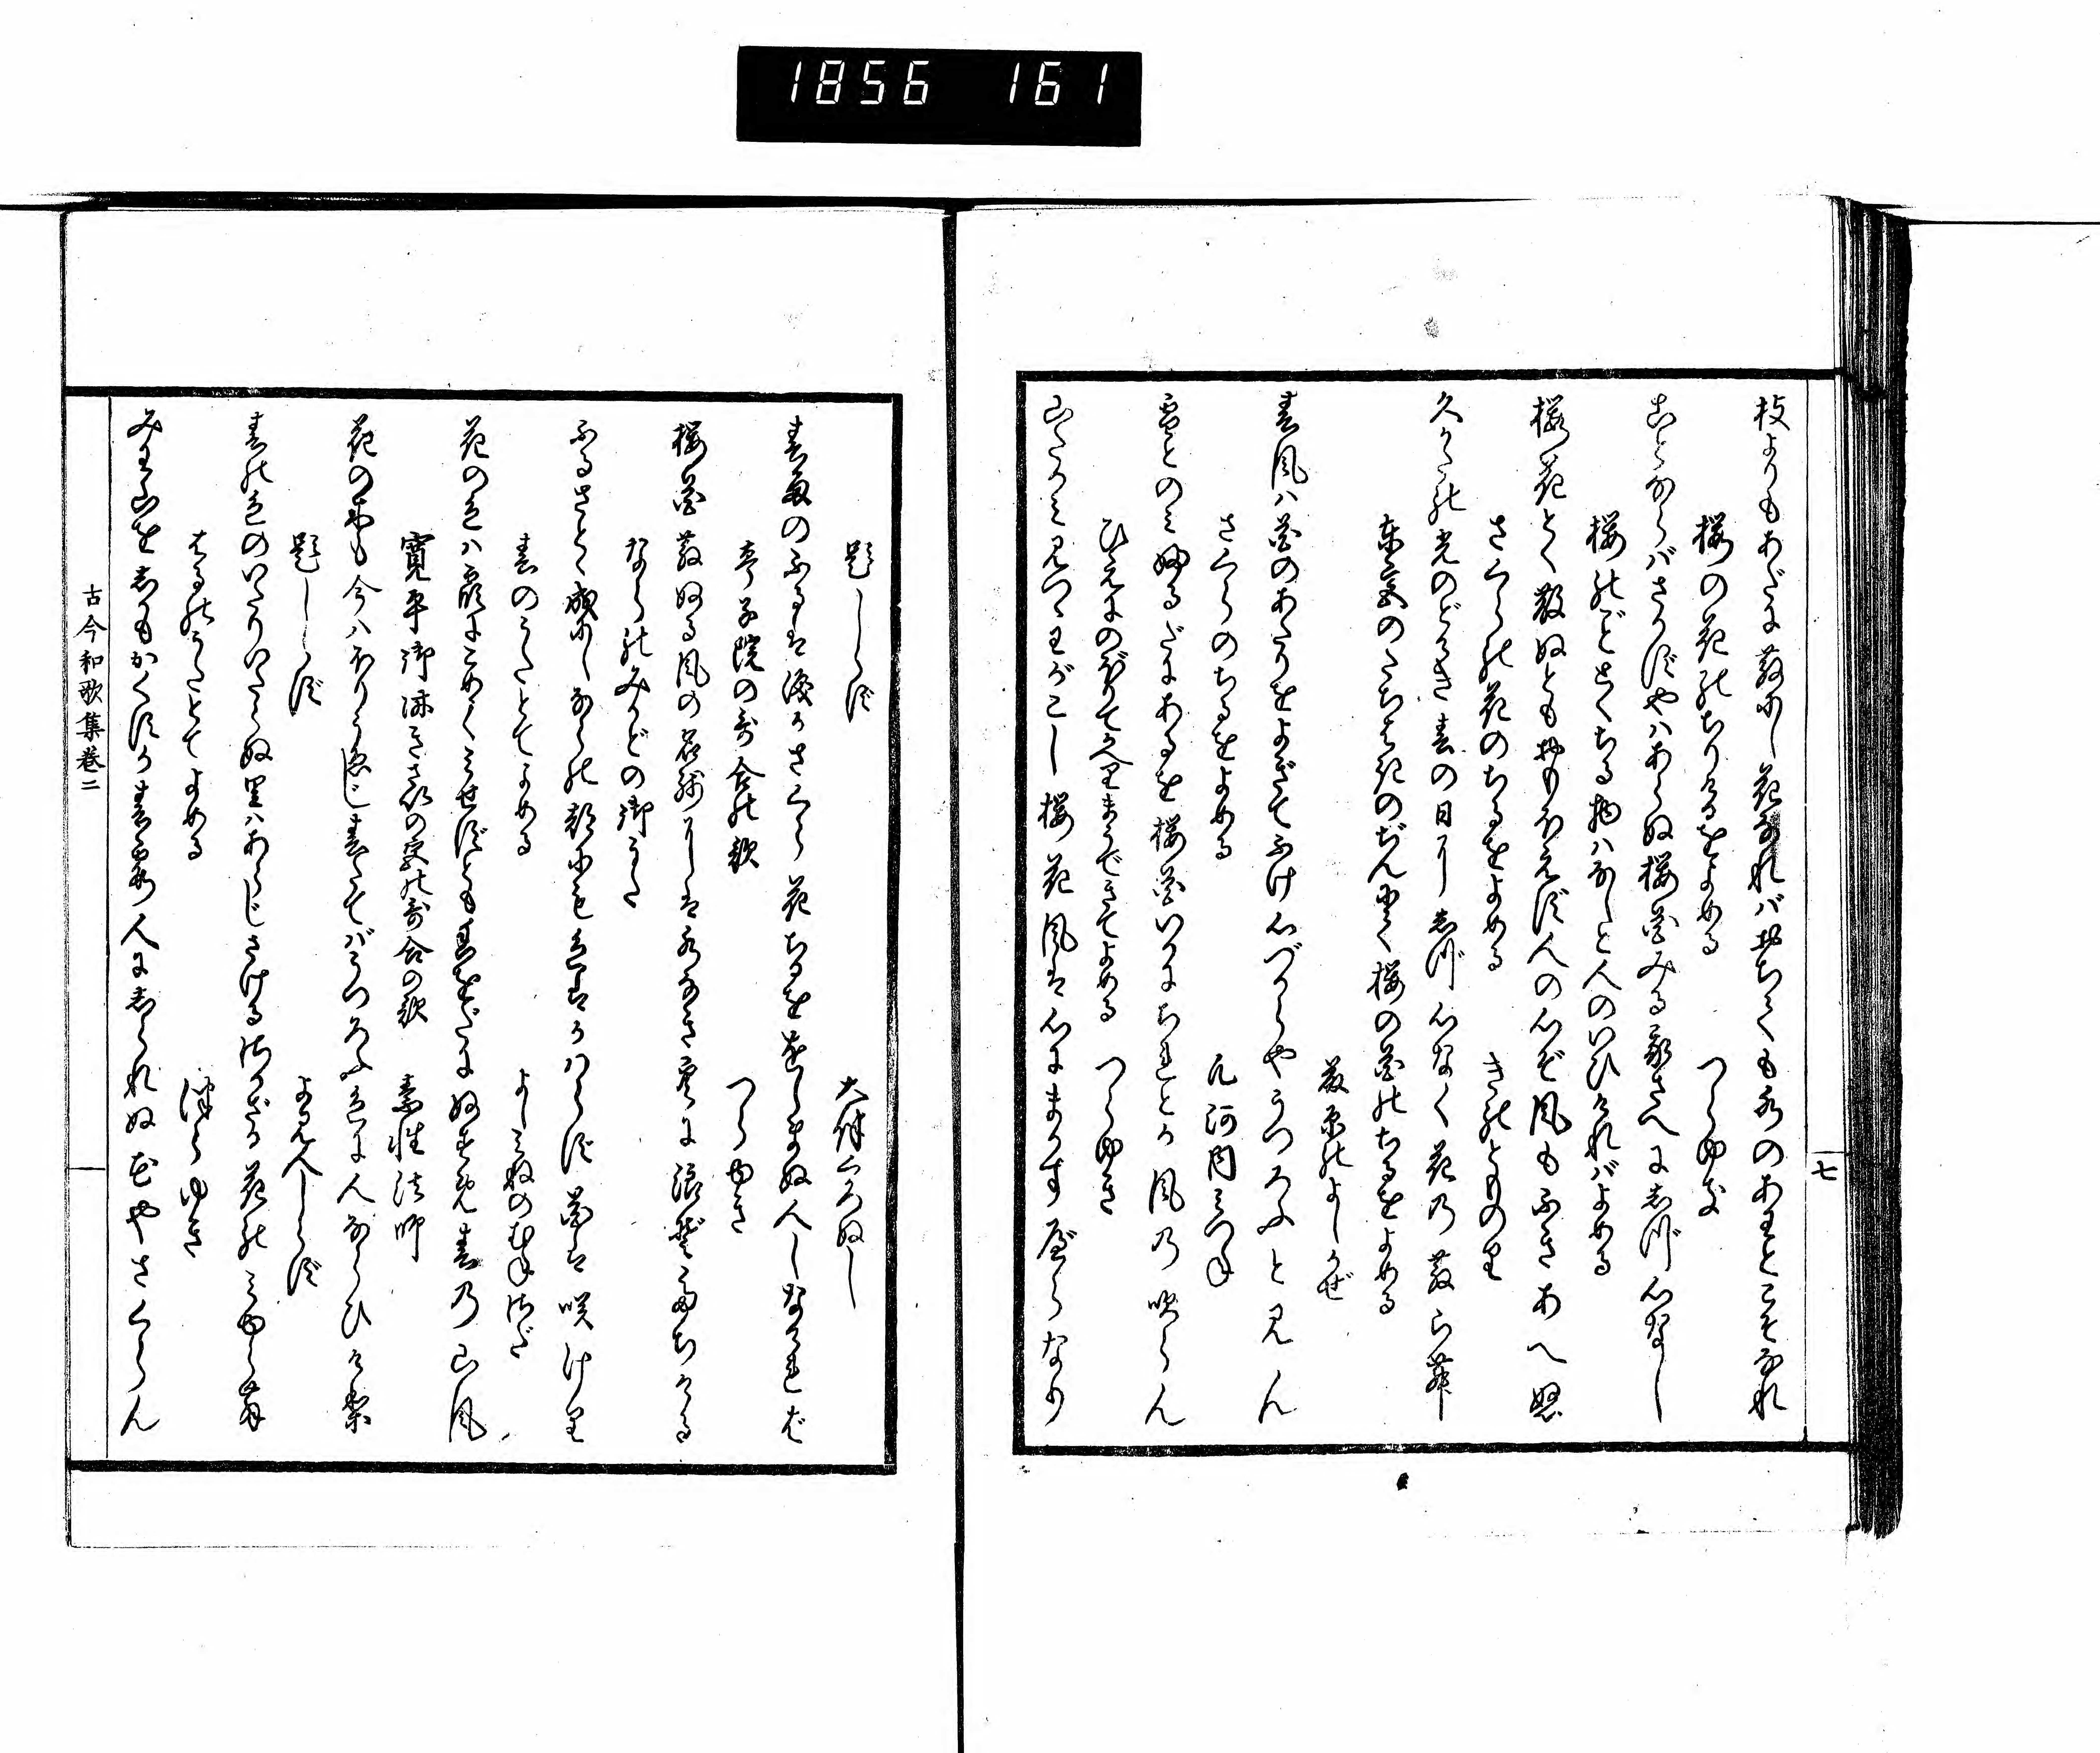 1856 161
七
枝よりもあだに散にし花なれバおちても水のあわとこそなれ
桜の花のちりけるをよめる つらゆき
ことならバさかずやハあらぬ桜花みる我さへに志づ心なし
桜のごととくちる物ハなしと人のいひけれバよめる
桜花とく散ぬともおもほえず人の心ぞ風もふきあへぬ
さくらの花のちるをよめる きのとものり
久かたの光のどけき春の日に志づ心なく花乃散らむ
東宮のたちはきのぢんにて桜の花のちるをよめる
藤原のよしかぜ
春風ハ花のあたりをよぎてふけ心づからやうつろふと見ん
さくらのちるをよめる 凡河内みつね
雪とのミふるだにあるを桜花いかにちれとか風乃吹らん
ひえにのぼりてかへりまうできてよめる つらゆき
山たかミ見つゝわがこし桜花風は心にまかす邊らなり
題しらず 大伴くろぬし
春雨のふるは涙かさくら花ちるををしまぬ人しなければ
亭子院の哥合の歌 つらゆき
桜花散ぬる風の名残には水なき空に浪ぞたちける
ならのみかどの御うた
ふるさとゝ成にしならの都にも色はかはらず花は咲けり
春のうたとてよめる よしミねのむねさだ
花の色ハ霞にこめてミせずとも香をだにぬすめ春乃山風
寛平御時きさいの宮の哥合の歌 素性法師
花の木も今ハほりうゑじ春たてバうつろふ色に人ならひけり
題しらず よみ人しらず
春の色のいたりいたらぬ里ハあらじさけるさかざる花のミゆらん
はるのうたとてよめる つらゆき
みわ山を志かもかくすか春霞人に志られぬ花やさくらん
古今和歌集巻二